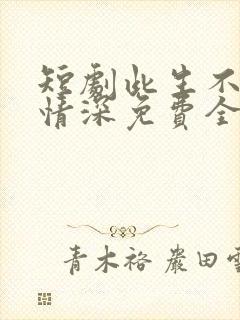 短劇此生不
情深免費全
青木裕 嚴田雪